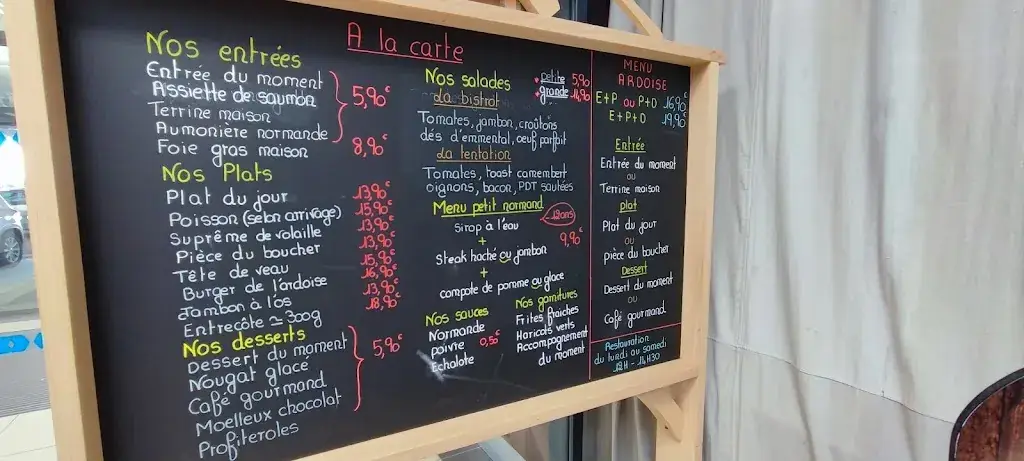 A la carte
Nos entrées
Entrée du moment
Assiette de saumon
Terrine maison
Aumonière normande
5,90€
Foie gras maison 8,90€
Nos Plats
Plat du jour 13,90€
Poisson (selon arrivage) 15,90€
Suprême de volaille 13,90€
Pièce du boucher 13,90€
Tête de veau 15,90€
Burger de l'ardoise 16,90€
Jambon à l'os 13,90€
Entrecôte ≃ 300g 18,90€
Nos desserts
Dessert du moment
Nougat glacé
Café gourmand
Moelleux chocolat
Profiteroles
5,90€
Nos salades petite 5,90
grande 14,90
La bistrot
Tomates, jambon, croûtons
dés d'emmental, oeuf parfait
La tentation
Tomates, toast camembert
oignons, bacon, PDT sautées
Menu petit normand
Sirop à l'eau
+
steak haché ou jambon
+
compote de pomme ou glace
9,90€
Nos sauces
Normande
poivre 0,50€
Echalote
Nos garnitures
Frites fraiches
Haricots verts
Accompagnement
du moment
MENU
ARDOISE
E+P ou P+D 16,90€
E+P+D 19,90€
Entrée
Entrée du moment
ou
Terrine maison
plat
Plat du jour
ou
pièce du boucher
Dessert
Dessert du moment
ou
Café gourmand
Restauration
du lundi au samedi
12H - 14H30